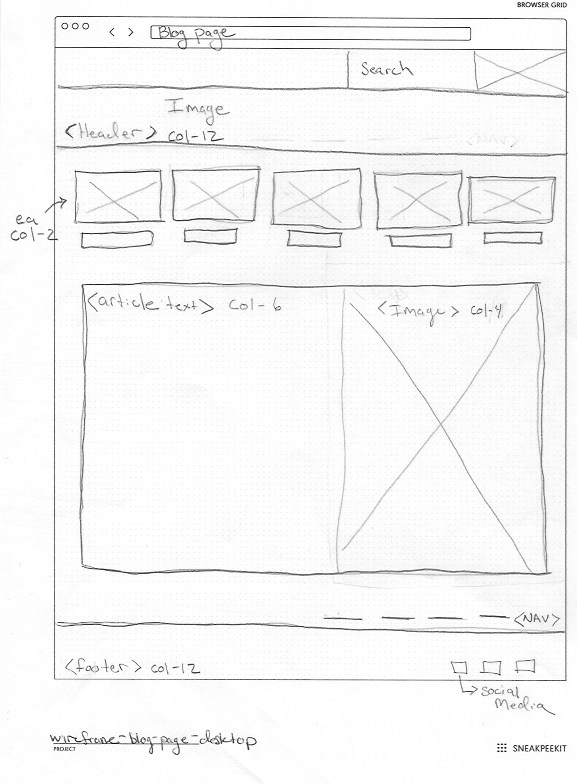 BROWSER GRID
< > Blog page
Search
Image
<Header> col-12
<NAV>
ea
col-2
<article text> col-6
<Image> col-4
<NAV>
<footer> col-12
social
Media
wireframe-blog-page-desktop
PROJECT
SNEAKPEEKIT